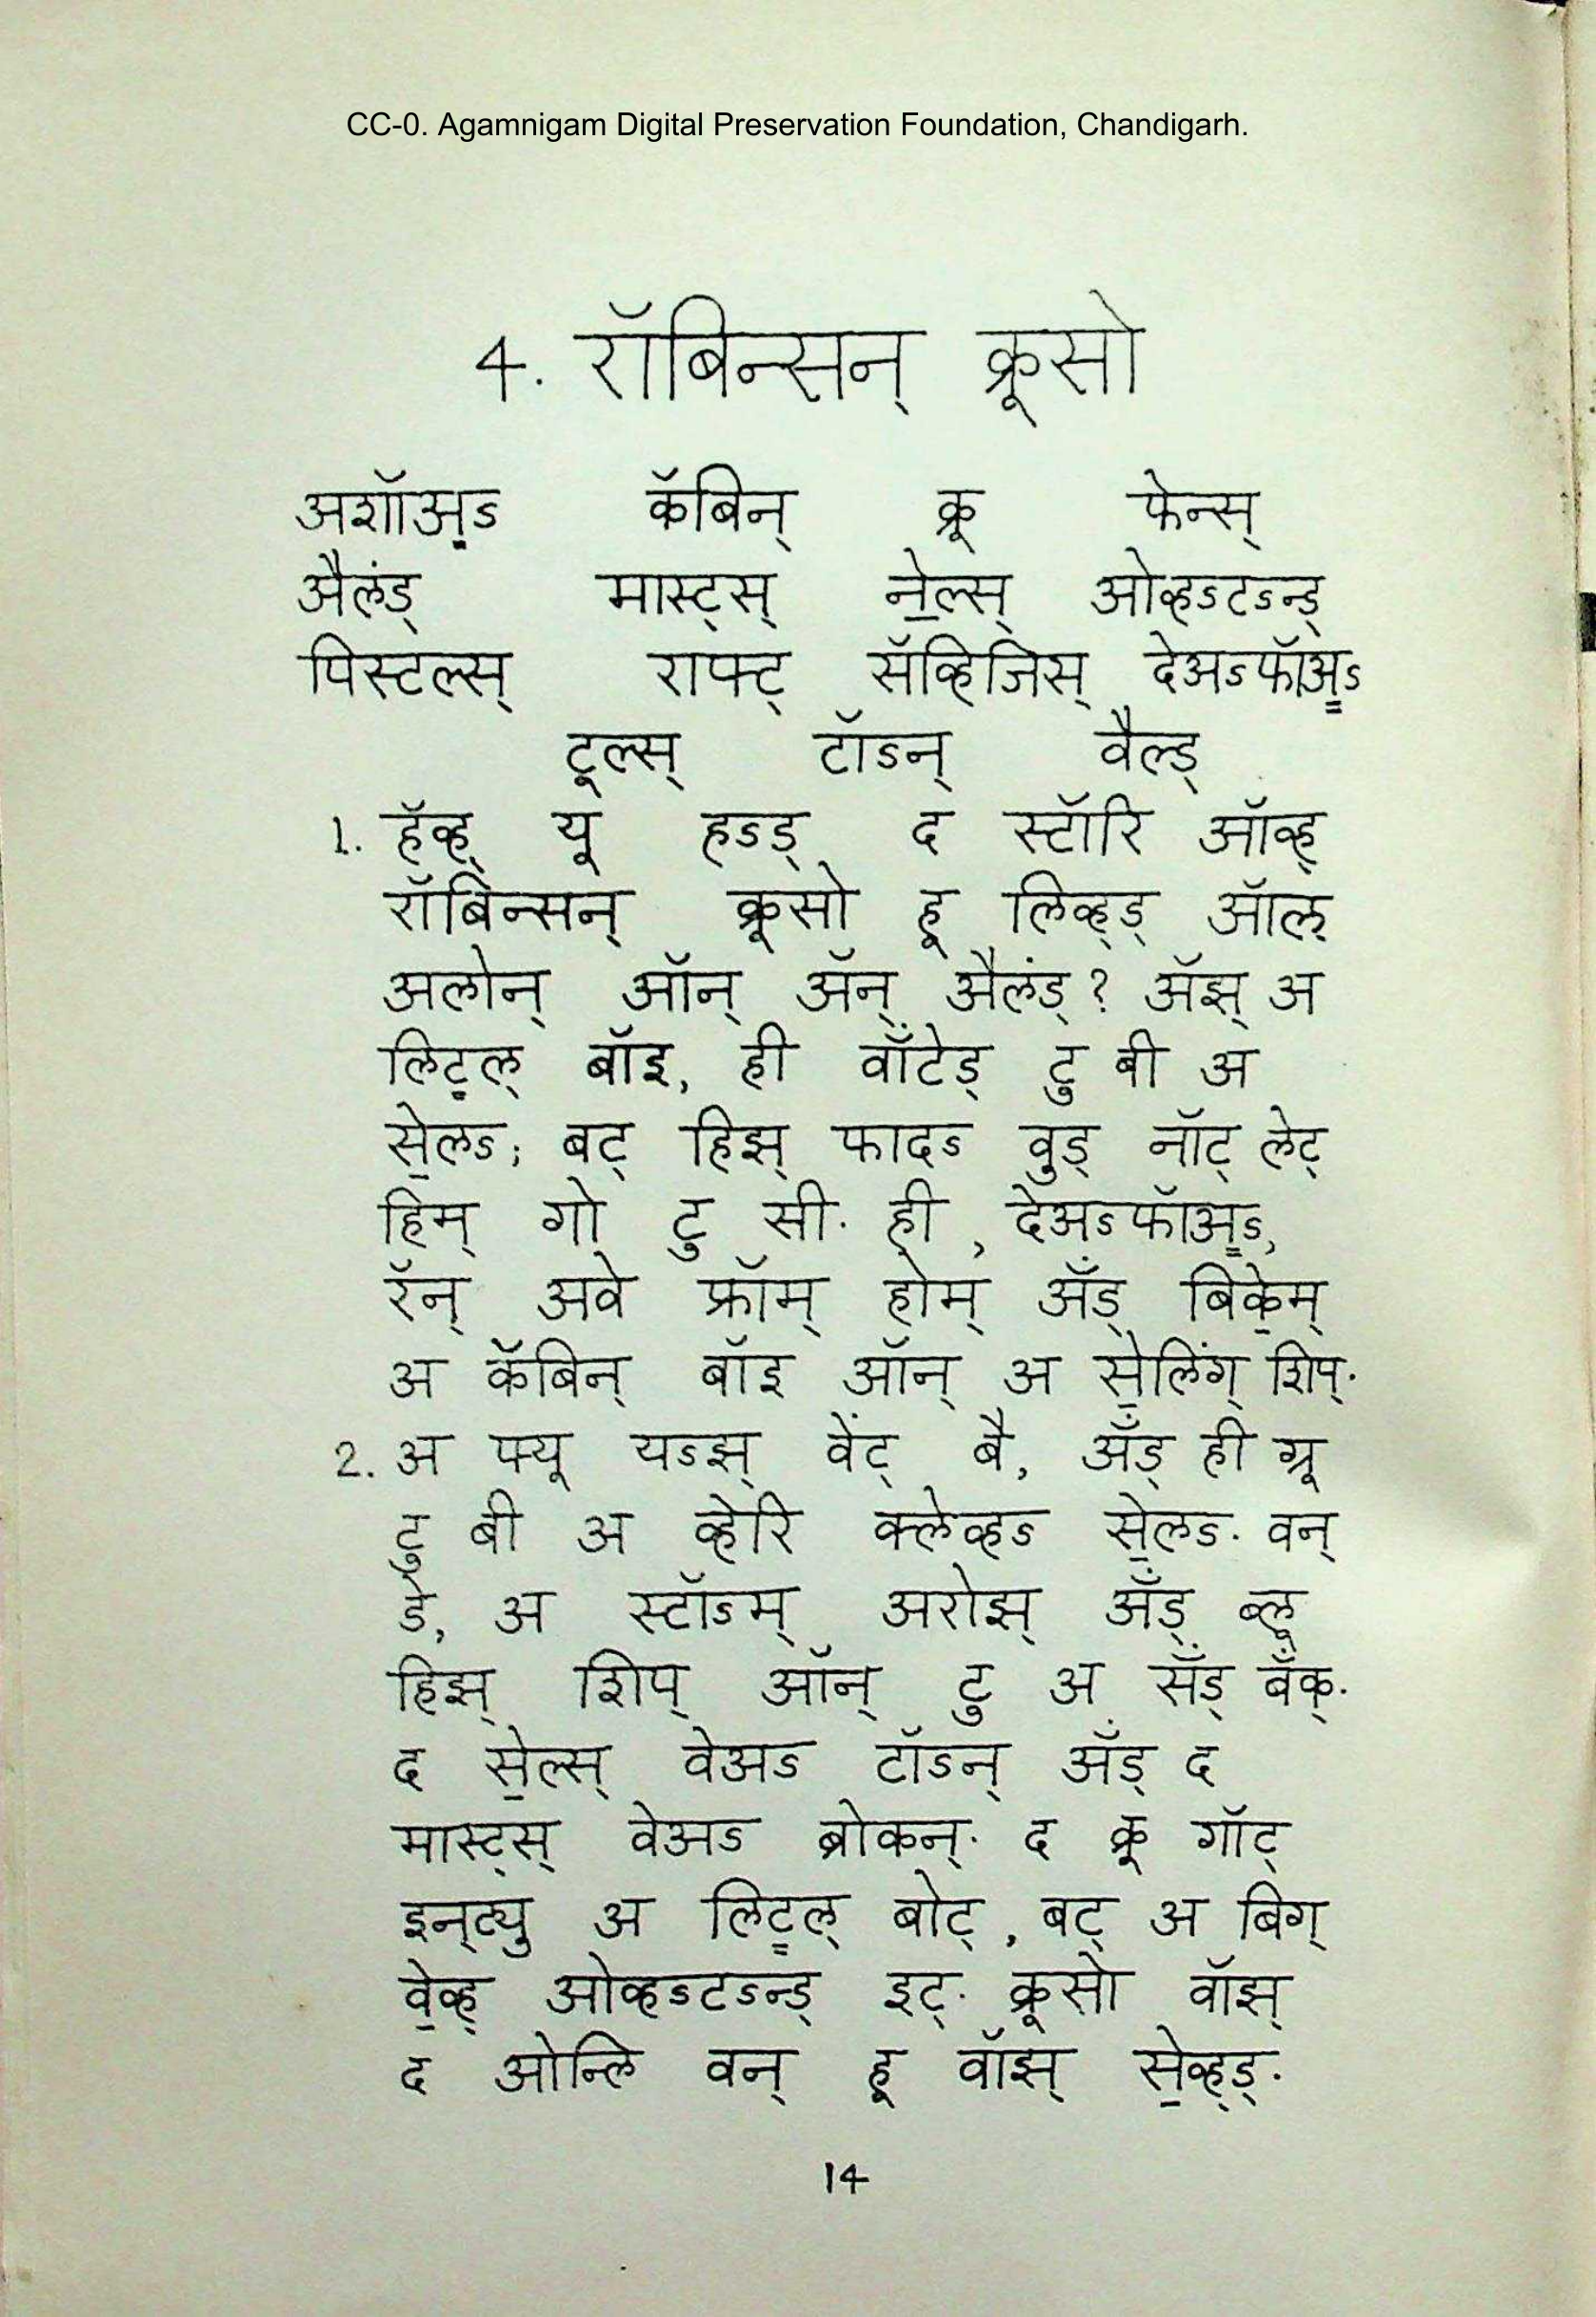 CC-0. Agamnigam Digital Preservation Foundation, Chandigarh.
4. रॉबिन्सन् क्रूसो
अशॉअ़ऽ कॅबिन् क्रू फेन्स्
अैलंड् मास्ट्स् ने॒ल्स् ओव्हऽटऽन्ड्
पिस्टल्स् राफ्ट् सॅव्हिजिस् देअऽफॉअ़ऽ
टूल्स् टॉऽन् वैल्ड्
1. हॅव्ह् यू हऽड् द स्टॉरि ऑव्ह्
रॉबिन्सन् क्रूसो हू लिव्ह्ड् ऑल्
अलोन् ऑन् ॲन् अैलंड्? ॲझ् अ
लिट़्ल् बॉइ, ही वॉंटेड् टु बी अ
से॒लऽ; बट् हिझ् फादऽ वुड् नॉट् लेट्
हिम् गो टु सी. ही, देअऽफॉअ़ऽ,
रॅन् अवे फ्रॉम् होम् ॲंड् बिके॒म्
अ कॅबिन् बॉइ ऑन् अ से॒लिंग् शिप्.
2. अ फ्यू यऽझ् वेंट् बै, ॲंड् ही ग्रू
टु बी अ व्हेरि क्लेव्हऽ से॒लऽ. वन्
डे, अ स्टॉऽम् अरोझ् ॲंड् ब्लू
हिझ् शिप् ऑन् टु अ सॅंड् बॅंक्.
द से॒ल्स् वेअऽ टॉऽन् ॲंड् द
मास्ट्स् वेअऽ ब्रोकन्. द क्रू गॉट्
इन्ट्यु अ लिट़्ल् बोट्, बट् अ बिग्
वे॒व्ह् ओव्हऽटऽन्ड् इट्. क्रूसो वॉझ्
द ओन्लि वन् हू वॉझ् से॒व्ह्ड्.
14